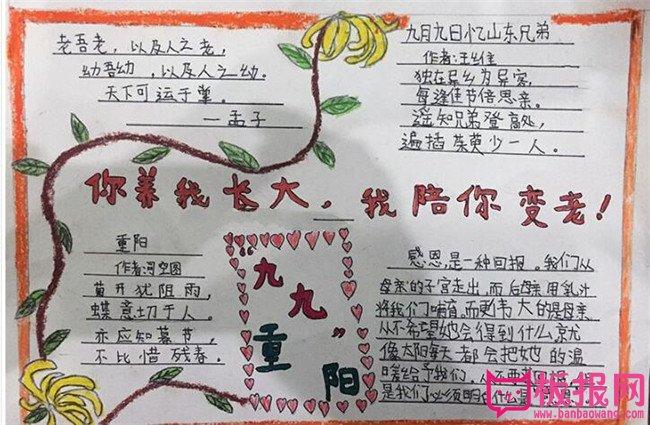 老吾老，以及人之老，
幼吾幼，以及人之幼。
天下可运于掌。
—孟子
九月九日忆山东兄弟
作者:王维
独在异乡为异客，
每逢佳节倍思亲。
遥知兄弟登高处，
遍插茱萸少一人。
你养我长大，我陪你变老！
重阳
作者:司空图
菊开犹阻雨，
蝶意切于人。
亦应知暮节，
不比惜残春。
“九九”
重阳
感恩，是一种回报。我们从
母亲的子宫走出，而后母亲用乳汁
将我们哺育。而更伟大的是母亲
从不希望她会得到什么。就
像太阳每天都会把她的温
暖给予我们，
是我们必须明白
板报网
www.banbaowang.com